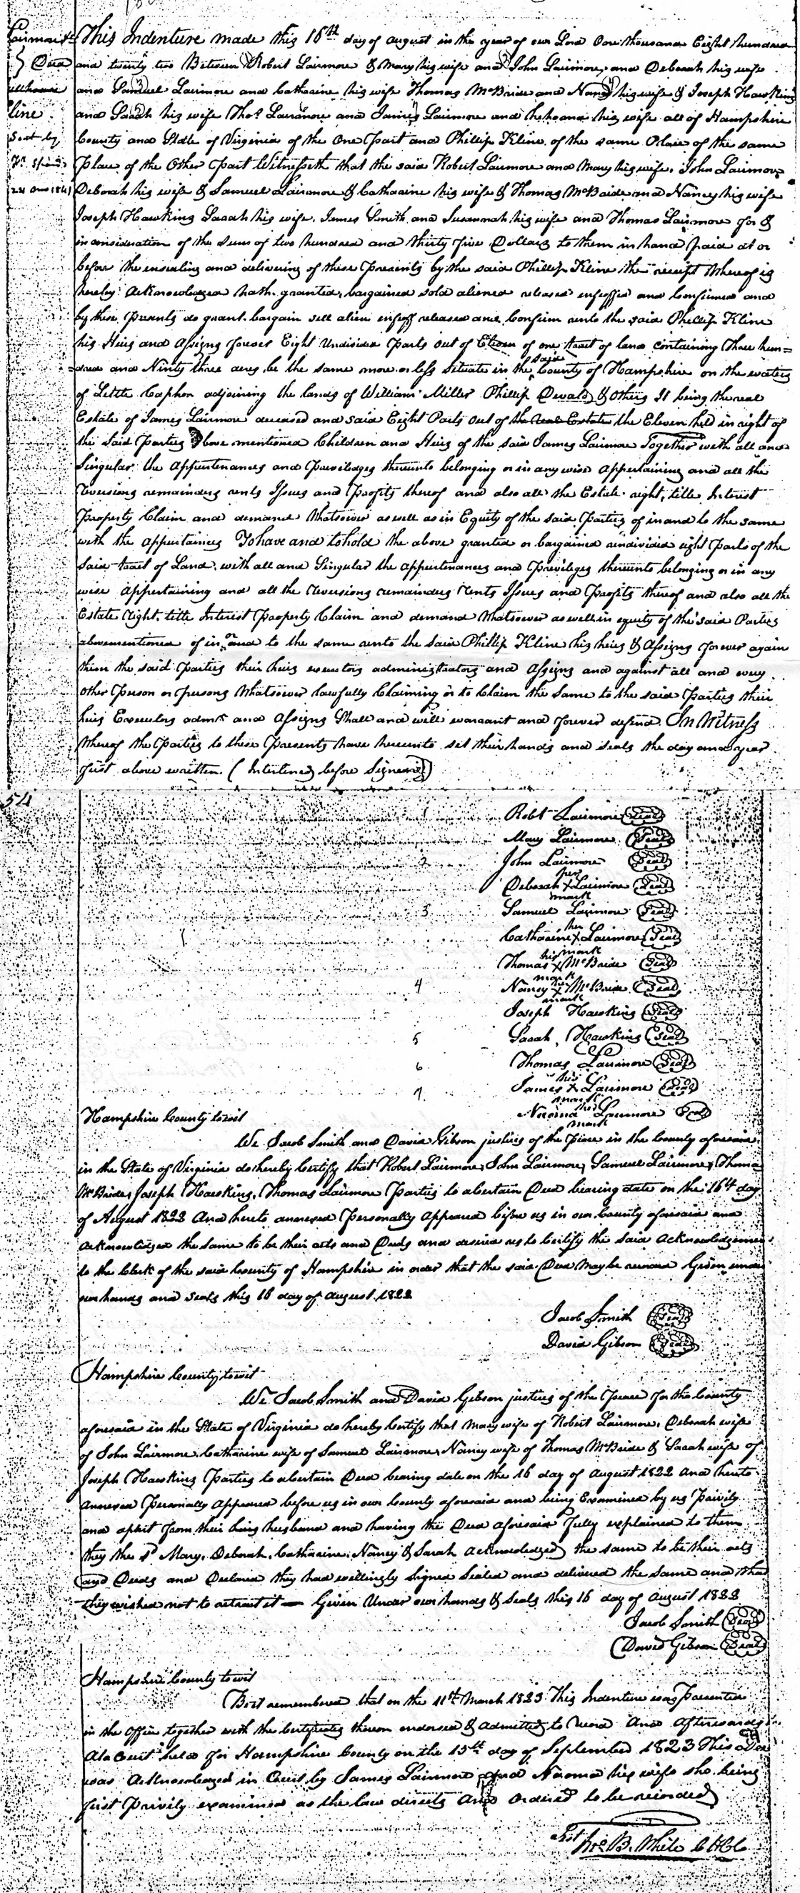 Larimore &c
} Deed
Kline
Sent by
24 1841
This Indenture made this 16th day of August in the year of our Lord One thousand Eight hundred
and twenty two Between Robert Larimore & Mary his wife and John Larimore, and Deborah his wife
and Samuel Larimore and Catharine his wife Thomas McBride and Nancy his wife & Joseph Hawkins
and Sarah his wife Thos Larimore and James Larimore and his wife all of Hampshire
County and State of Virginia of the One part and Phillip Kline of the same Place of the same
place of the Other part Witnesseth that the said Robert Larimore and Mary his wife, John Larimore
Deborah his wife & Samuel Larimore & Catharine his wife & Thomas McBride and Nancy his wife
Joseph Hawking Sarah his wife, James Smith and Susannah his wife and Thomas Larimore for &
in consideration of the sum of two hundred and thirty five Dollars to them in hand paid at or
before the ensealing and delivering of these Presents by the said Phillip Kline the receipt whereof is
hereby Acknowledged hath granted, bargained sold aliened released enfeoffed and Confirmed and
by these presents do grant bargain sell alien enfeoff released and confirm unto the said Phillip Kline
his Heirs and Assigns forever Eight Undivided Parts out of Eleven of one tract of land containing Three hun=
dred and Ninty three acres be the same more or less Situate in the said County of Hampshire on the waters
of Little Caphon adjoining the lands of William Miller Phillip & Others It being the real
Estate of James Larimore deceased and said Eight Parts out of the real Estate the Eleven held in right of
the Said Parties Above mentioned Children and Heirs of the said James Larimore Together with all and
Singular the Appurtenances and Priviledges thereunto belonging or in any wise Appertaining and all the
reversions remainders rents Issues and Profits thereof and also all the Estate right, title Interest
Property Claim and demand Whatsoever as well as in Equity of the said Parties of in and to the same
with the appurtainces To have and to hold the above granted or bargained undivided eight Parts of the
Said tract of Land, with all and Singular the appurtenances and Privileges thereunto belonging or in any
wise Appertaining and all the reversions remainders rents Issues and Profits thereof and also all the
Estate right, title Interest Property Claim and demand Whatsoever as well in equity of the said Parties
abovementioned of in or and to the same unto the said Phillip Kline his heirs & Assigns forever again
them the said Parties their heirs executors administrators and Assigns and against all and every
other Person or persons Whatsoever lawfully Claiming or to Claim the Same to the said Parties their
heirs Executors admrs and Assigns Shall and will warrant and forever defend In Witness
Whereof the Parties to these Presents have hereunto set their hands and seals the day and year
first above written. (Interlined before Signed)
54
1 Robt Larimore Seal
Mary Larimore Seal
2 John Larimore Seal
her
Deborah X Larimore Seal
mark
3 Samuel Larimore Seal
her
Catharine X Larimore Seal
mark
his
Thomas X McBride Seal
mark
4 Nancy X McBride Seal
mark
Joseph Hawking Seal
5 Sarah Hawking Seal
6 Thomas Larimore Seal
his
7 James X Larimore Seal
mark
her
Naoma Larimore Seal
mark
Hampshire County to wit
We Jacob Smith and David Gibson justices of the Peace in the County aforesaid
in the State of Virginia do hereby Certify that Robert Larimore, John Larimore, Samuel Larimore, Thomas
McBride, Joseph Hawking, Thomas Larimore Parties to a Certain Deed bearing date on the 16th day
of August 1822 And hereto annexed Personally Appeared before us in our County aforesaid and
Acknowledged the same to be their acts and Deeds and desired us to Certify the said Acknowledgement
to the Clerk of the said County of Hampshire in order that the said Deed may be recorded Given under
our hands and Seals this 16 day of August 1822
Jacob Smith Seal
David Gibson Seal
Hampshire County to wit
We Jacob Smith and David Gibson justices of the Peace for the County
aforesaid in the State of Virginia do hereby Certify that Mary wife of Robert Larimore, Deborah wife
of John Larimore Catharine wife of Samuel Larimore, Nancy wife of Thomas McBride & Sarah wife of
Joseph Hawking Parties to a Certain Deed bearing date on the 16 day of August 1822 And hereto
Annexed Personally Appeared before us in our County aforesaid and being Examined by us Privily
and apart from their husband and having the Deed aforesaid fully explained to them
they the sd Mary, Deborah, Catharine, Nancy & Sarah Acknowledged the same to be their acts
and Deeds and Declared they had willingly Signed Sealed and delivered the same and that
they wished not to retract it — Given Under our hands & Seals this 16 day of August 1822
Jacob Smith Seal
David Gibson Seal
Hampshire County to wit
Be it remembered that on the 11th March 1823 This Indenture was Presented
in the Office together with the Certificates thereon endorsed & Admitted to record And Afterwards
At a Court held for Hampshire County on the 15th day of September 1823 This Deed
was Acknowledged in Court by James Larimore and Naoma his wife she being
first Privily examined as the law directs And Ordered to be recorded
Test Jno B. White C H C